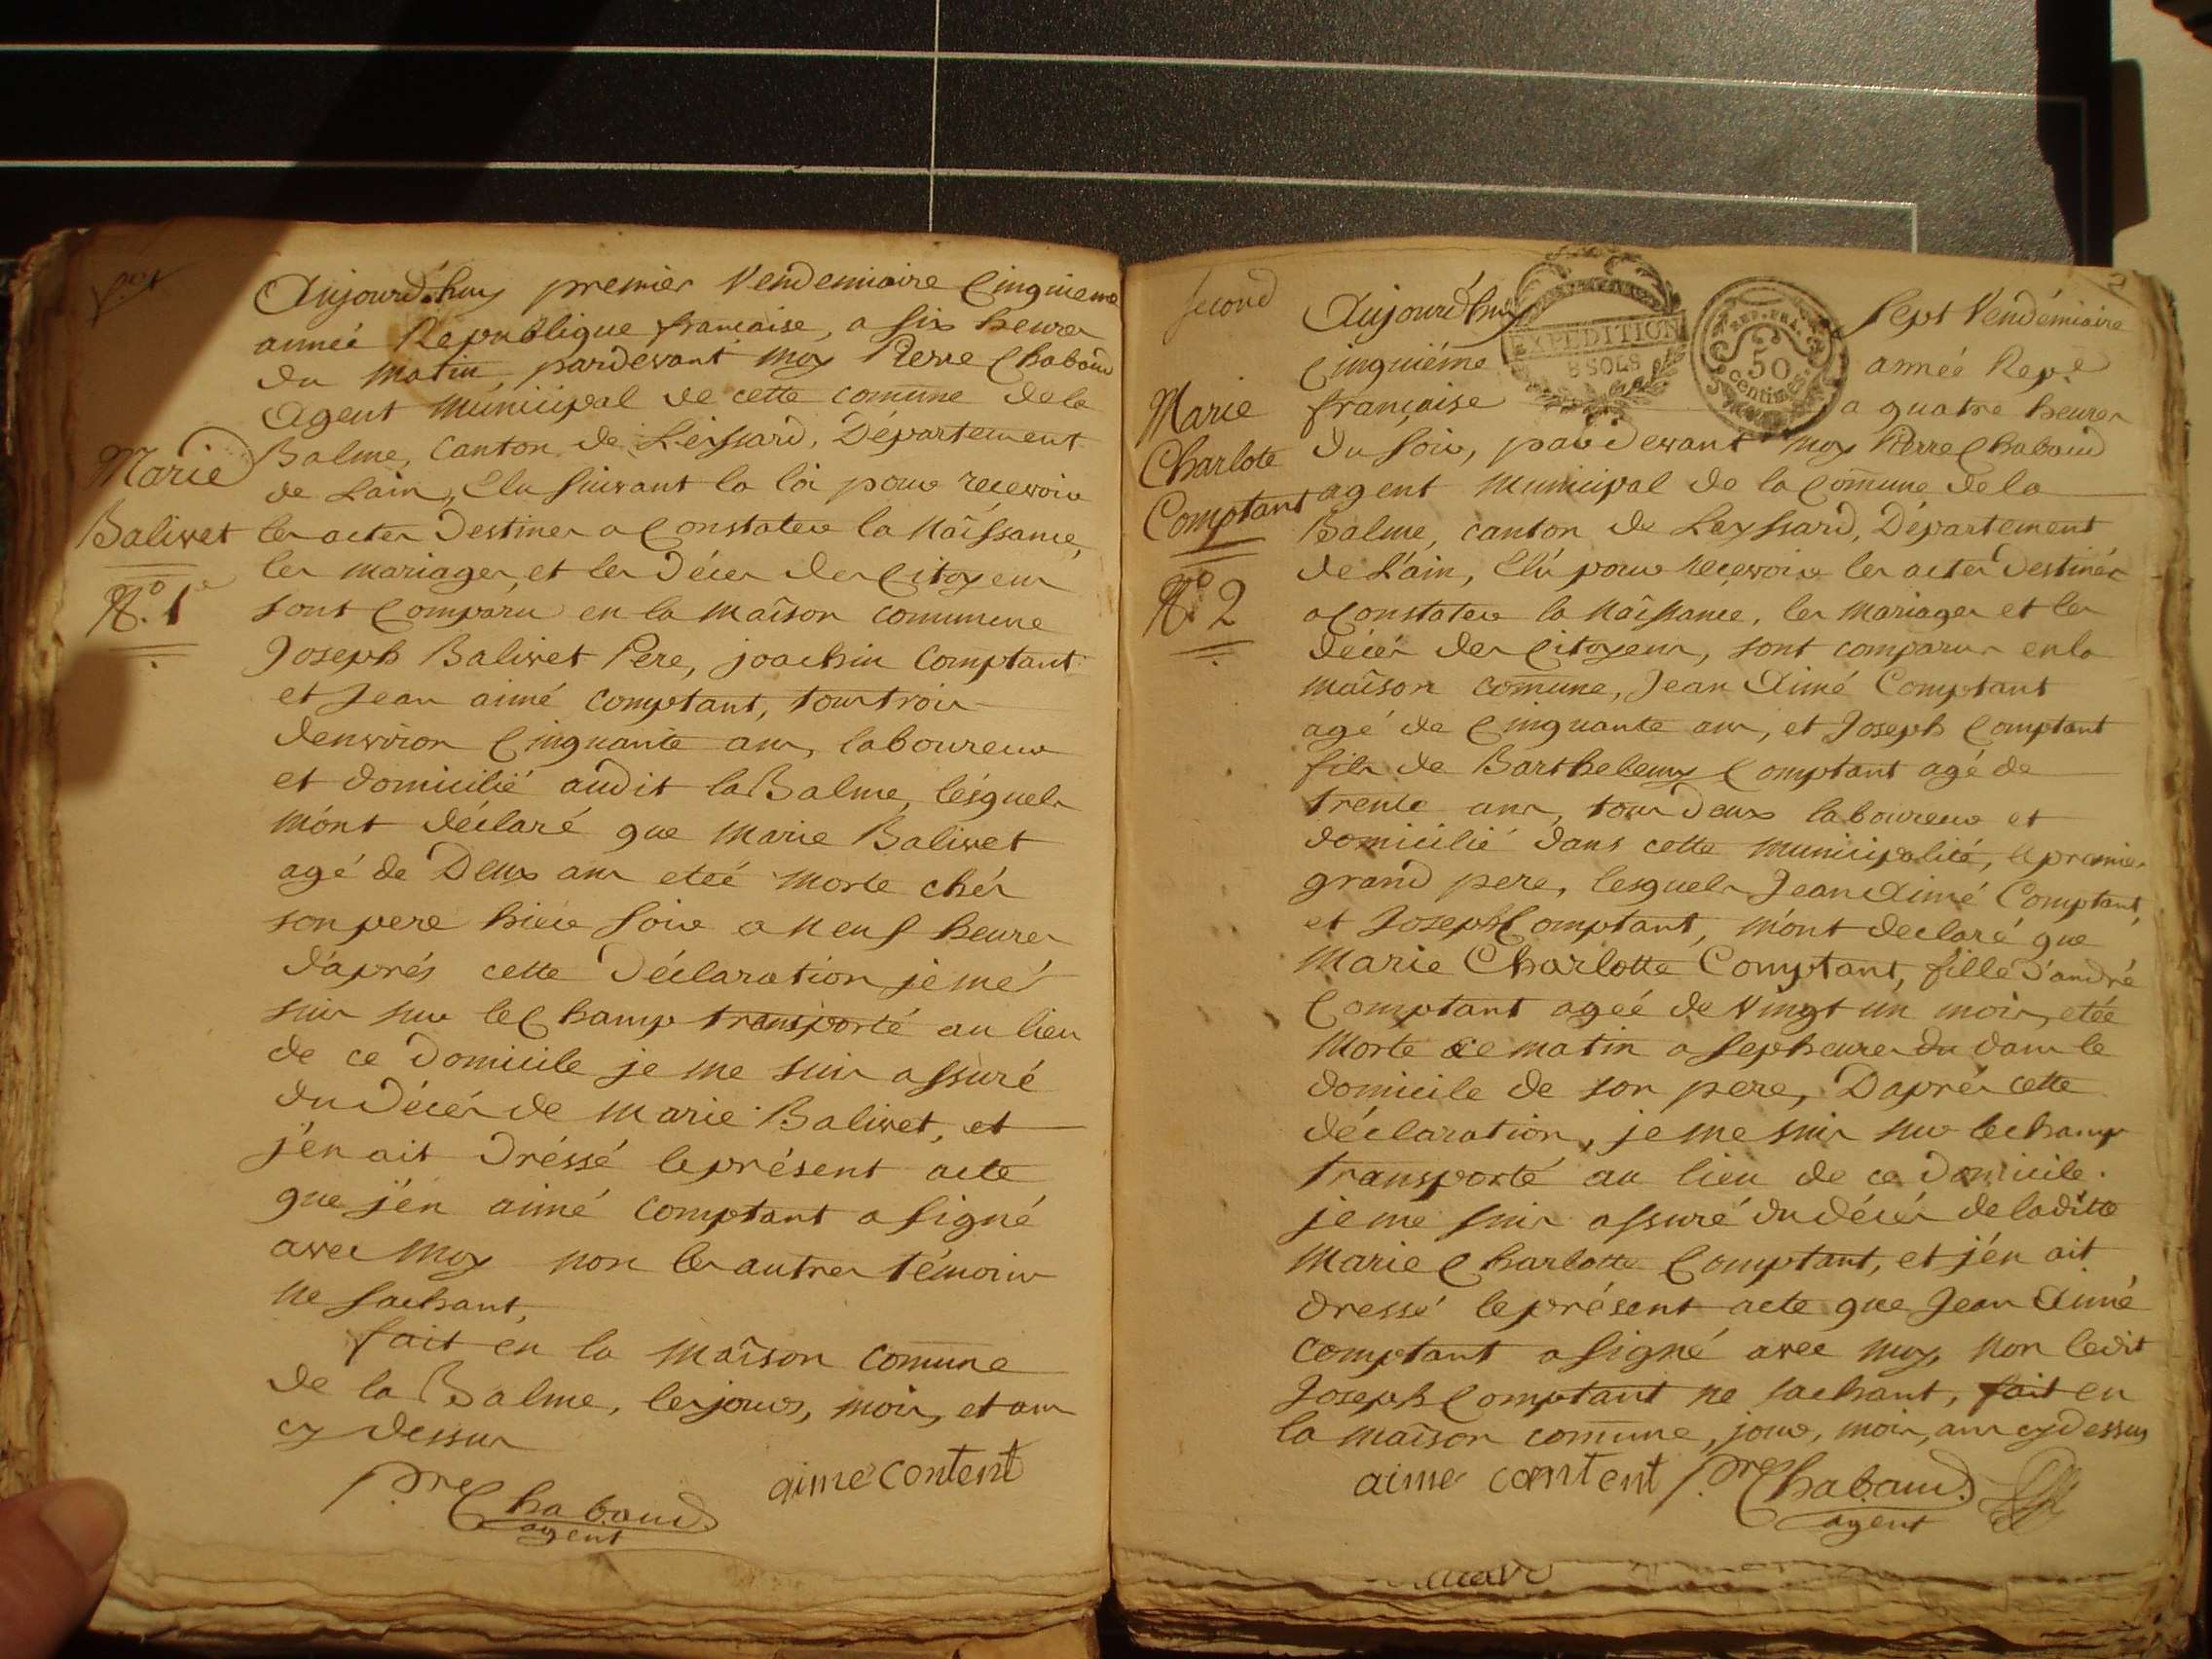 Aujourd'huy premier Vendemiaire Cinquieme
année Republique francaise, a six heures
du matin, pardevant moy Pierre Chabaud
Agent municipal de cette comune de la
Balme, Canton de Leissard, Département
de Lain, Elu suivant la loi pour recevoir
les actes destines a Constater la Naîssance,
les mariages, et les décés des Citoyens
sont Comparu en la maîson commune
Joseph Balivet Pere, joachin Comptant
et Jean aimé Comptant, tous trois
denviron Cinquante ans, laboureur
et domicilié audit la Balme, lésquels
m'ont déclaré que Marie Balivet
agé de Deux ans eteé morte chés
son pere hier soir a neuf heures
d'aprés cette Déclaration je me
suis sur le Champ transporté au lieu
de ce domicile je me suis assuré
du décés de Marie Balivet, et
j'en ait dréssé le présent acte
que j'en aimé Comptant a signé
avec moy non les autres témoins
ne sachant,
fait en la maîson comune
de la Balme, les jours, mois, et ans
cy dessus
Pre Chabaud
agent
aime content
Marie
Balivet
No. 1
second
2
Aujourd'huy sept Vendémiaire
Cinquiéme année Repe
française a quatre heures
EXPEDITION
8 SOLS
REP. FRA.
50
centimes
du soir, par devant moy Pierre Chabaud
agent municipal de la Comune de la
Balme, canton de Leyssard, Département
de L'ain, Elû pour recevoir les actes destinés
a Constater la Naîssance, les mariages et les
décés des Citoyens, sont comparus en la
maîson comune, Jean Aimé Comptant
agé de Cinquante ans, et Joseph Comptant
fils de Barthelemy Comptant agé de
trente ans, tous deux laboureur et
domicilié dans cette municipalité, le premier
grand pere, lesquels Jean Aimé Comptant,
et Joseph Comptant, m'ont declaré que
Marie Charlotte Comptant, fille d'andré
Comptant ageé de Vingt un mois, etée
morte ce matin a sept heures du dans le
domicile de son pere, D'aprés cette
déclaration, je me suis sur le champ
transporté au lieu de ce domicile.
je me suis assuré du décés de la ditte
Marie Charlotte Comptant, et j'en ait
dressé le présent acte que Jean Aimé
Comptant a signé avec moy, non ledit
Joseph Comptant ne sachant, fait en
la maîson comune, jour, mois, ans cy dessus
aime contént Pre Chabaud
agent
Marie
Charlote
Comptant
No. 2